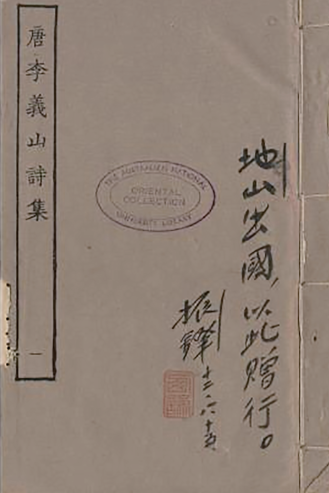 唐李義山詩集
一
THE AUSTRALIAN NATIONAL
ORIENTAL
COLLECTION
UNIVERSITY LIBRARY
地山出國，以此贈行。
振鐸 十二、六、十五